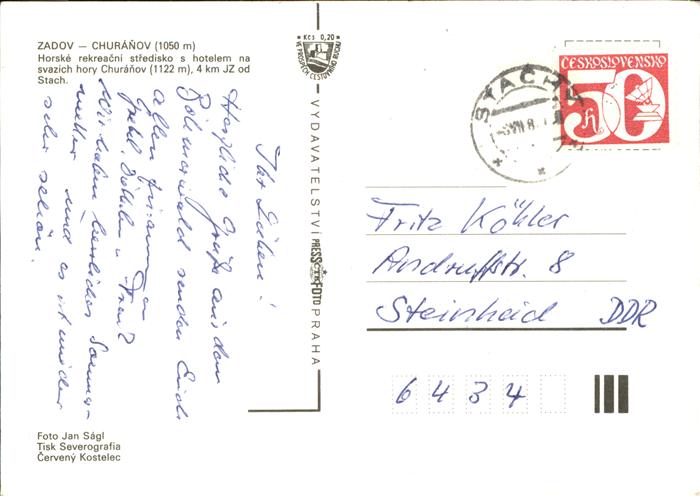 ZADOV – CHURÁŇOV (1050 m)
Horské rekreační středisko s hotelem na
svazích hory Churáňov (1122 m), 4 km JZ od
Stach.
Ihr Lieben!
Herzliche Grüße aus dem
Böhmerwald senden Euch
allen
Wir haben herrliches Sommer-
wetter und es ist wieder
sehr schön.
Foto Jan Ságl
Tisk Severografia
Červený Kostelec
Kčs 0,20
VE PROSPĚCH CESTOVNÍHO RUCHU
VYDAVATELSTVÍ PRESSFOTO PRAHA
STACHY
ČESKOSLOVENSKO
50 h
Fritz Köhler
Andruffstr. 8
Steinheid DDR
6 4 3 4